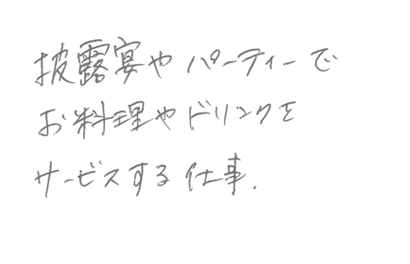 披露宴やパーティーで
お料理やドリンクを
サービスする仕事.